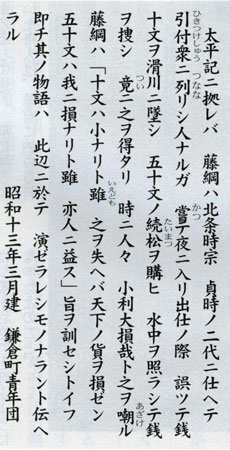 太平記ニ拠レバ 藤綱ハ北条時宗 貞時ノ二代ニ仕ヘテ
引付衆ニ列リシ人ナルガ 嘗テ夜ニ入リ出仕ノ際 誤ツテ銭
十文ヲ滑川ニ墜シ 五十文ノ続松ヲ購ヒ 水中ヲ照ラシテ銭
ヲ捜シ 竟ニ之ヲ得タリ 時ニ人々 小利大損哉ト之ヲ嘲ル
藤綱ハ「十文ハ小ナリト雖 之ヲ失ヘバ天下ノ貨ヲ損ゼン
五十文ハ我ニ損ナリト雖 亦人ニ益ス」旨ヲ訓セシトイフ
即チ其ノ物語ハ 此辺ニ於テ 演ゼラレシモノナラント伝ヘ
ラル 昭和十三年三月建 鎌倉町青年団